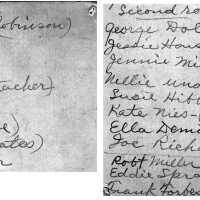 Robinson)
Teacher)
Second ro
George Dol
Jessie Hou
Jennie Mi
Nellie und
Susie Hibb
Kate Nies-
Ella Demi
Joe Rich
Robt Miller
Eddie Spra
Frank Forbe